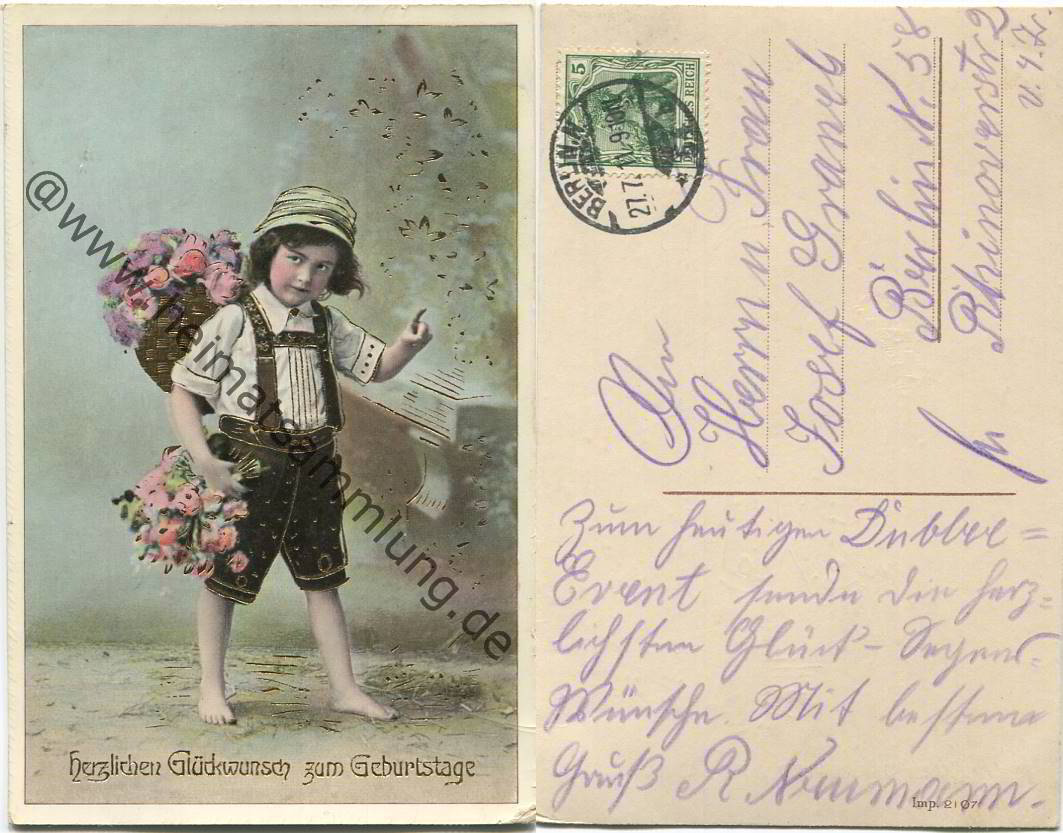 @www.heimatsammlung.de
Herzlichen Glückwunsch zum Geburtstage
5
DEUTSCHES REICH
BERLIN N.
27.7. 11. 9-10N
An
Herrn u Frau
Josef
Berlin N. 58
Rhinowerstr 2
v. 4. Tr.
Zum heutigen Dubbel=
Event sende die herz-
lichsten Glück- Segens-
Wünsche. Mit besten
Gruß R. Neumann.
Imp. 2107